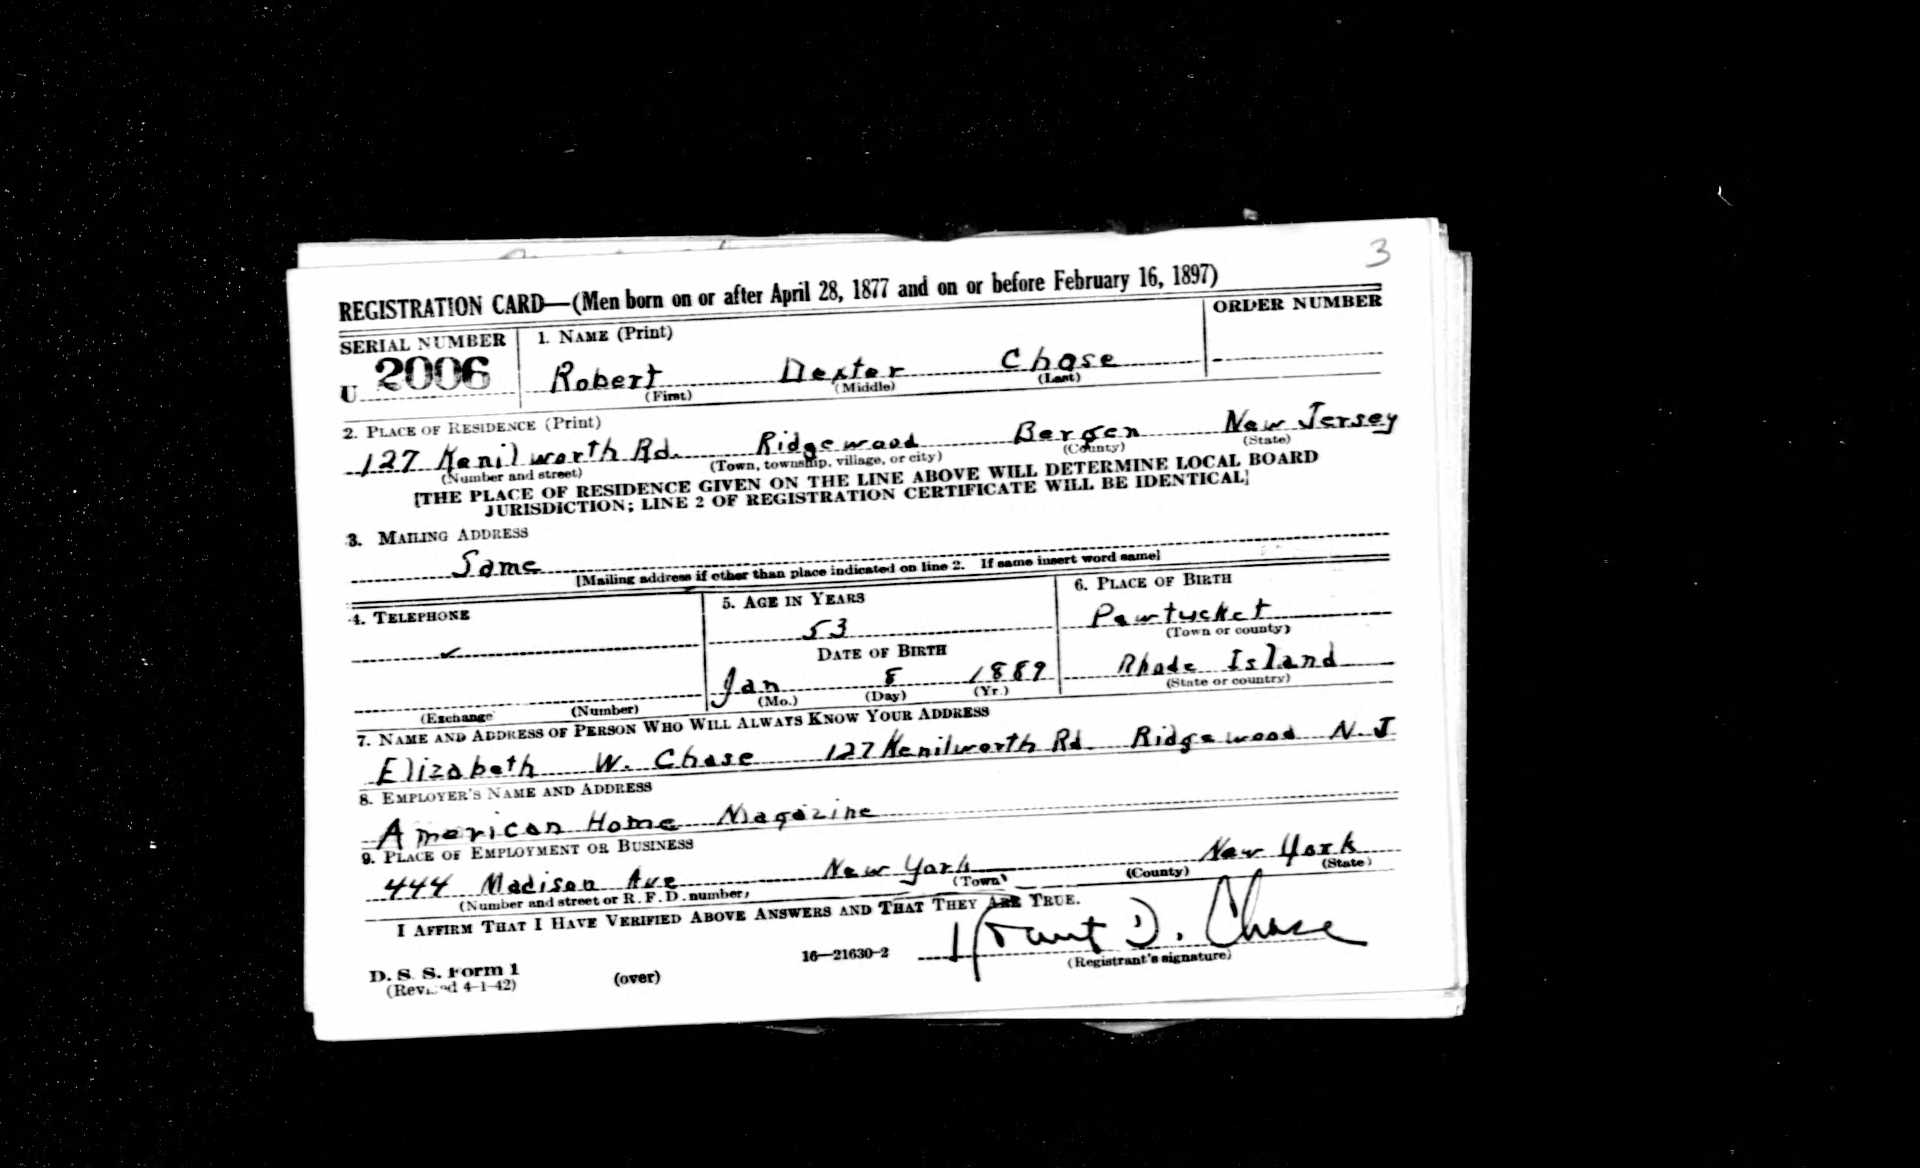 3
REGISTRATION CARD—(Men born on or after April 28, 1877 and on or before February 16, 1897)
SERIAL NUMBER
1. NAME (Print)
ORDER NUMBER
U 2006
Robert Dexter Chase
(First) (Middle) (Last)
2. PLACE OF RESIDENCE (Print)
127 Kenilworth Rd. Ridgewood Bergen New Jersey
(Number and street) (Town, township, village, or city) (County) (State)
[THE PLACE OF RESIDENCE GIVEN ON THE LINE ABOVE WILL DETERMINE LOCAL BOARD
JURISDICTION; LINE 2 OF REGISTRATION CERTIFICATE WILL BE IDENTICAL]
3. MAILING ADDRESS
Same
[Mailing address if other than place indicated on line 2. If same insert word same]
4. TELEPHONE
5. AGE IN YEARS
6. PLACE OF BIRTH
53
Pawtucket
(Town or county)
DATE OF BIRTH
Rhode Island
(State or country)
Jan 8 1889
(Mo.) (Day) (Yr.)
(Exchange (Number)
7. NAME AND ADDRESS OF PERSON WHO WILL ALWAYS KNOW YOUR ADDRESS
Elizabeth W. Chase 127 Kenilworth Rd. Ridgewood N. J
8. EMPLOYER'S NAME AND ADDRESS
American Home Magazine
9. PLACE OF EMPLOYMENT OR BUSINESS
444 Madison Ave New York New York
(Number and street or R. F. D. number) (Town) (County) (State)
I AFFIRM THAT I HAVE VERIFIED ABOVE ANSWERS AND THAT THEY ARE TRUE.
D. S. S. Form 1
(Revised 4-1-42)
(over)
16—21630-2
D. Chase
(Registrant's signature)